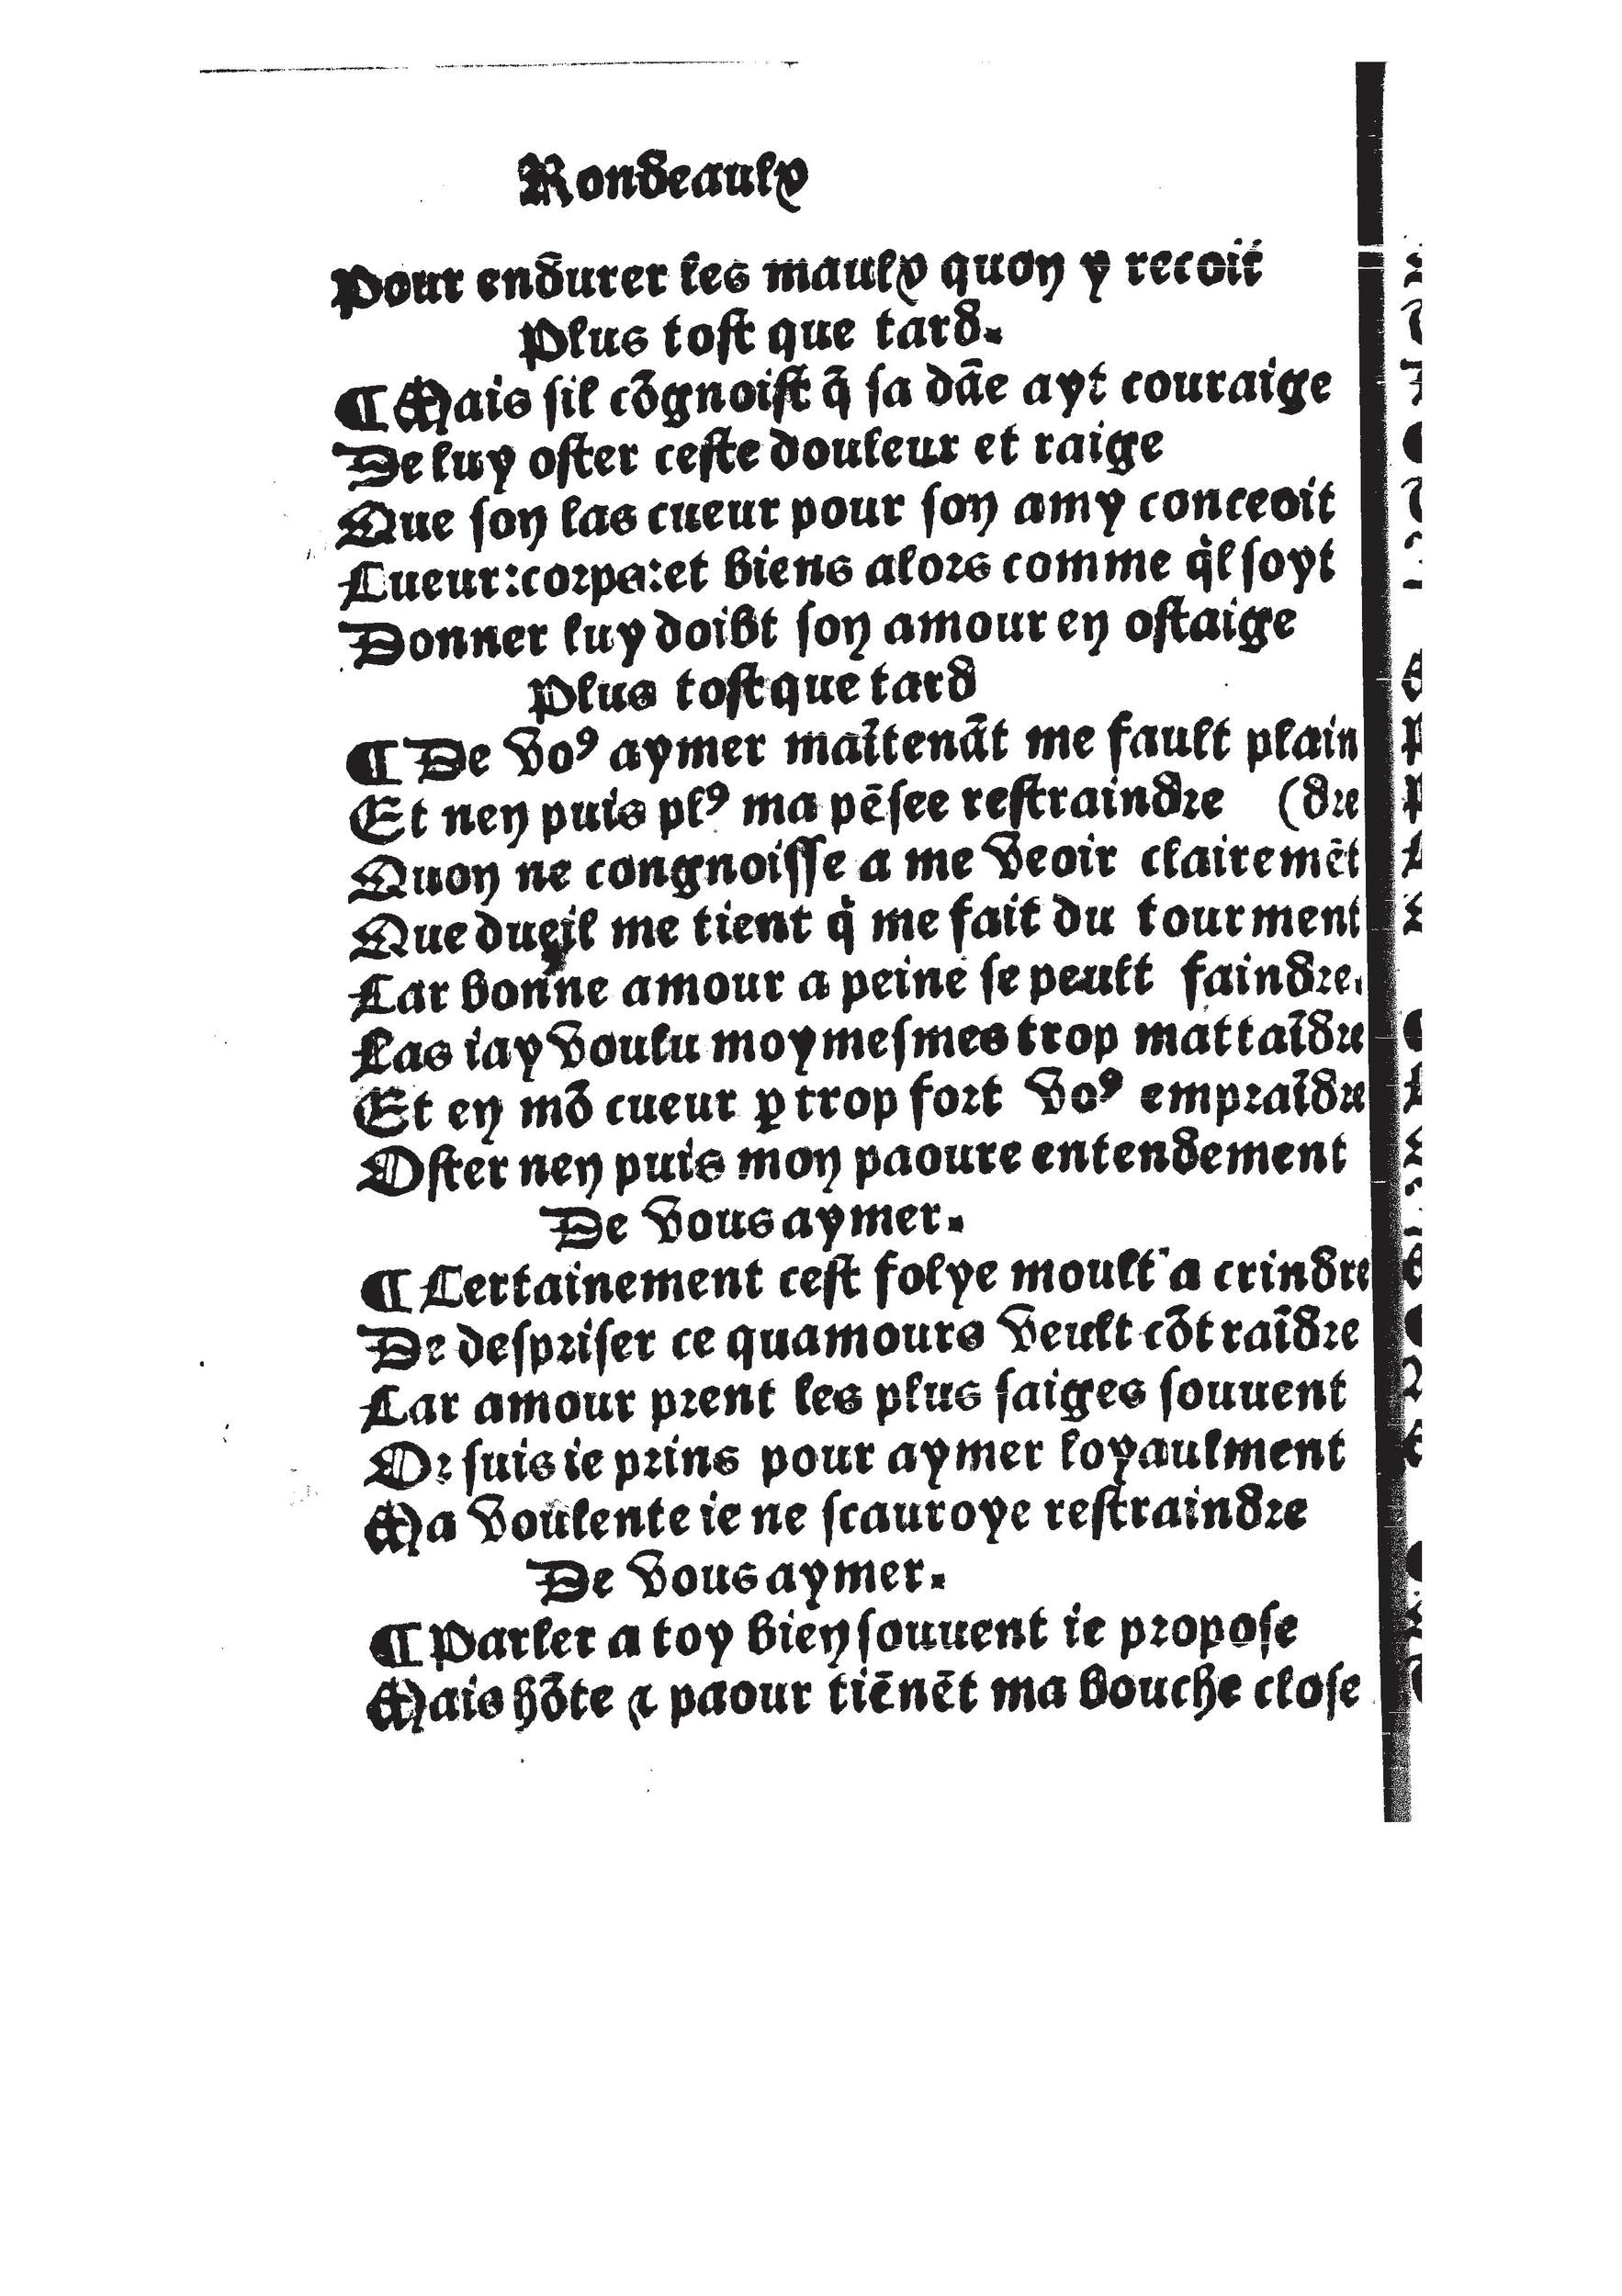 Rondeaulx
Pour endurer les maulx quon y recoit
Plus tost que tard.
¶ Mais sil cõgnoist q̃ sa dãe ayt couraige
De luy oster ceste douleur et raige
Que son las cueur pour son amy conceoit
Cueur:corps:et biens alors comme q̇l soyt
Donner luy doibt son amour en ostaige
Plus tost que tard
¶ De voꝰ aymer maĩtenãt me fault plain
Et nen puis plꝰ ma pẽsee restraindre (dre
Quon ne congnoisse a me veoir clairemẽt
Que dueil me tient q̇ me fait du tourment
Car bonne amour a peine se peult faindre.
Las iay voulu moymesmes trop mattaĩdre
Et en mõ cueur ꝑ trop fort voꝰ empraĩdre
Oster nen puis mon paoure entendement
De vous aymer.
¶ Certainement cest folye moult a crindre
De despriser ce quamours veult cõtraĩdre
Car amour prent les plus saiges souuent
Or suis ie prins pour aymer loyaulment
Ma voulente ie ne scauroye restraindre
De vous aymer.
¶ Parler a toy bien souuent ie propose
Mais hõte ⁊ paour tiẽnẽt ma bouche close